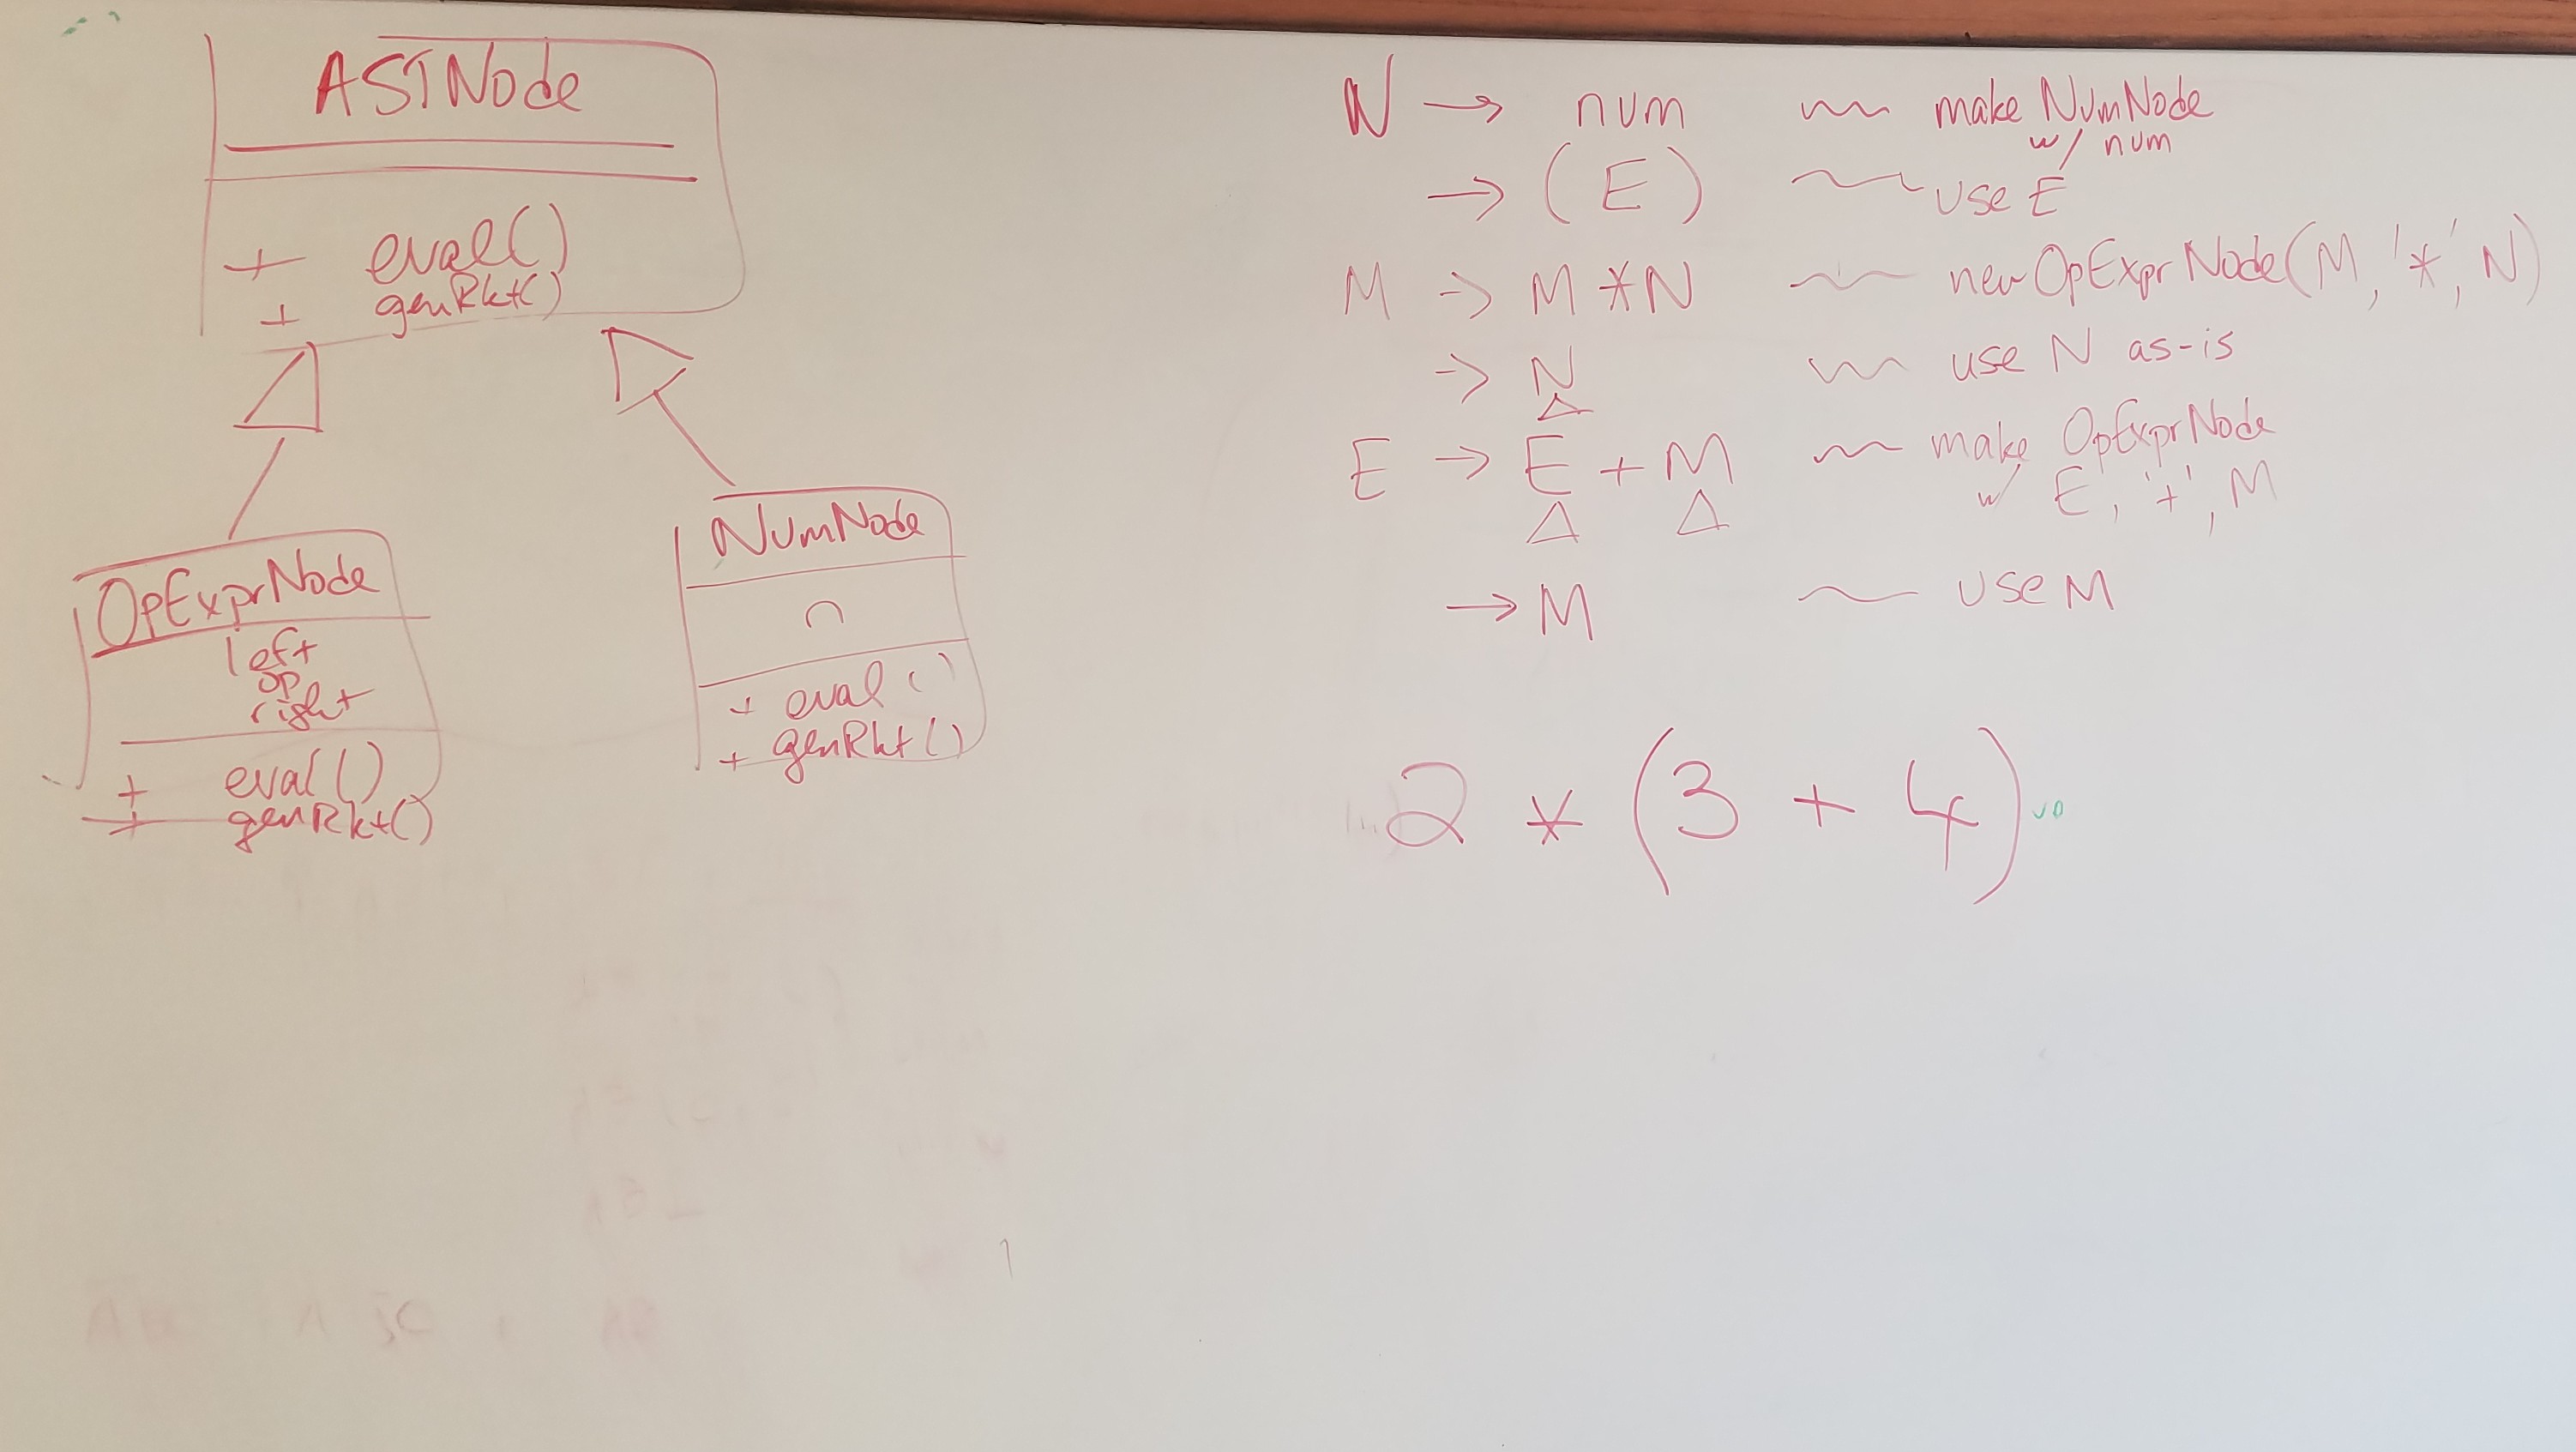 ASTNode
+ eval()
+ genRkt()
OpExprNode
left
op
right
+ eval()
+ genRkt()
NumNode
n
+ eval()
+ genRkt()
N → num ~~ make NumNode
w/ num
→ (E) ~~ use E
M → M * N ~~ new OpExprNode(M, '*', N)
→ N ~~ use N as-is
E → E + M ~~ make OpExprNode
w/ E, '+', M
→ M ~~ use M
2 * (3 + 4)